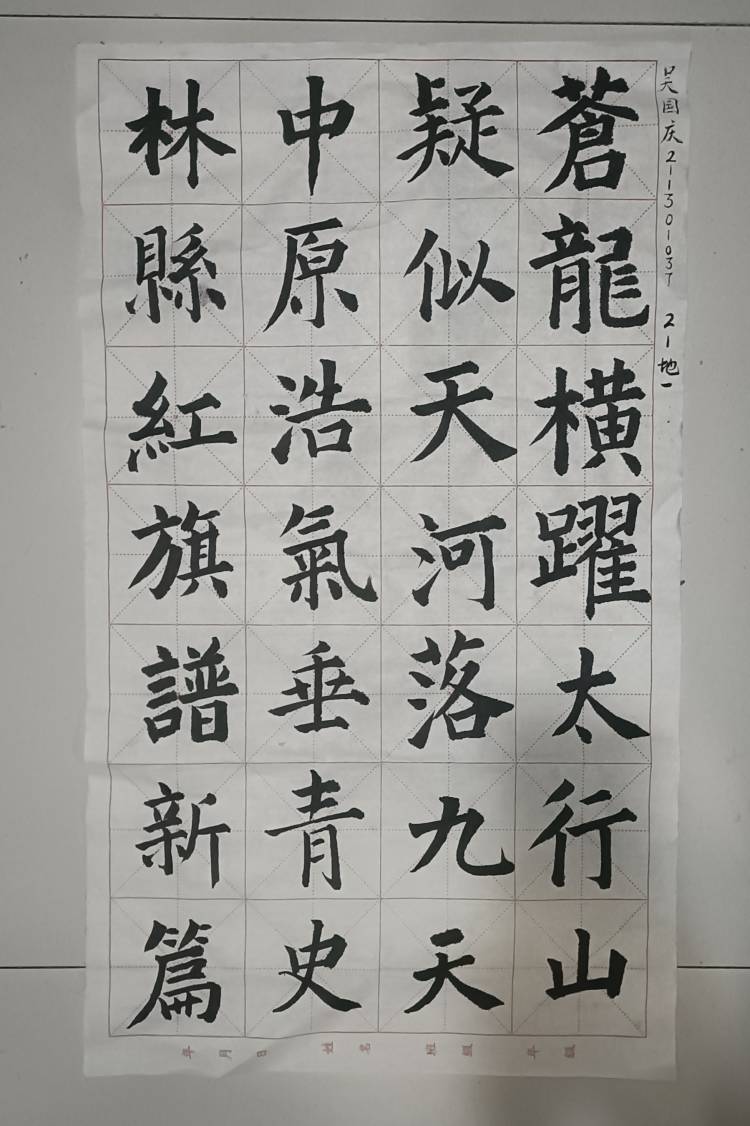 吴国庆 21301037 21地一
蒼龍横躍太行山
疑似天河落九天
中原浩氣垂青史
林縣紅旗譜新篇
年級 班級 姓名 年月日